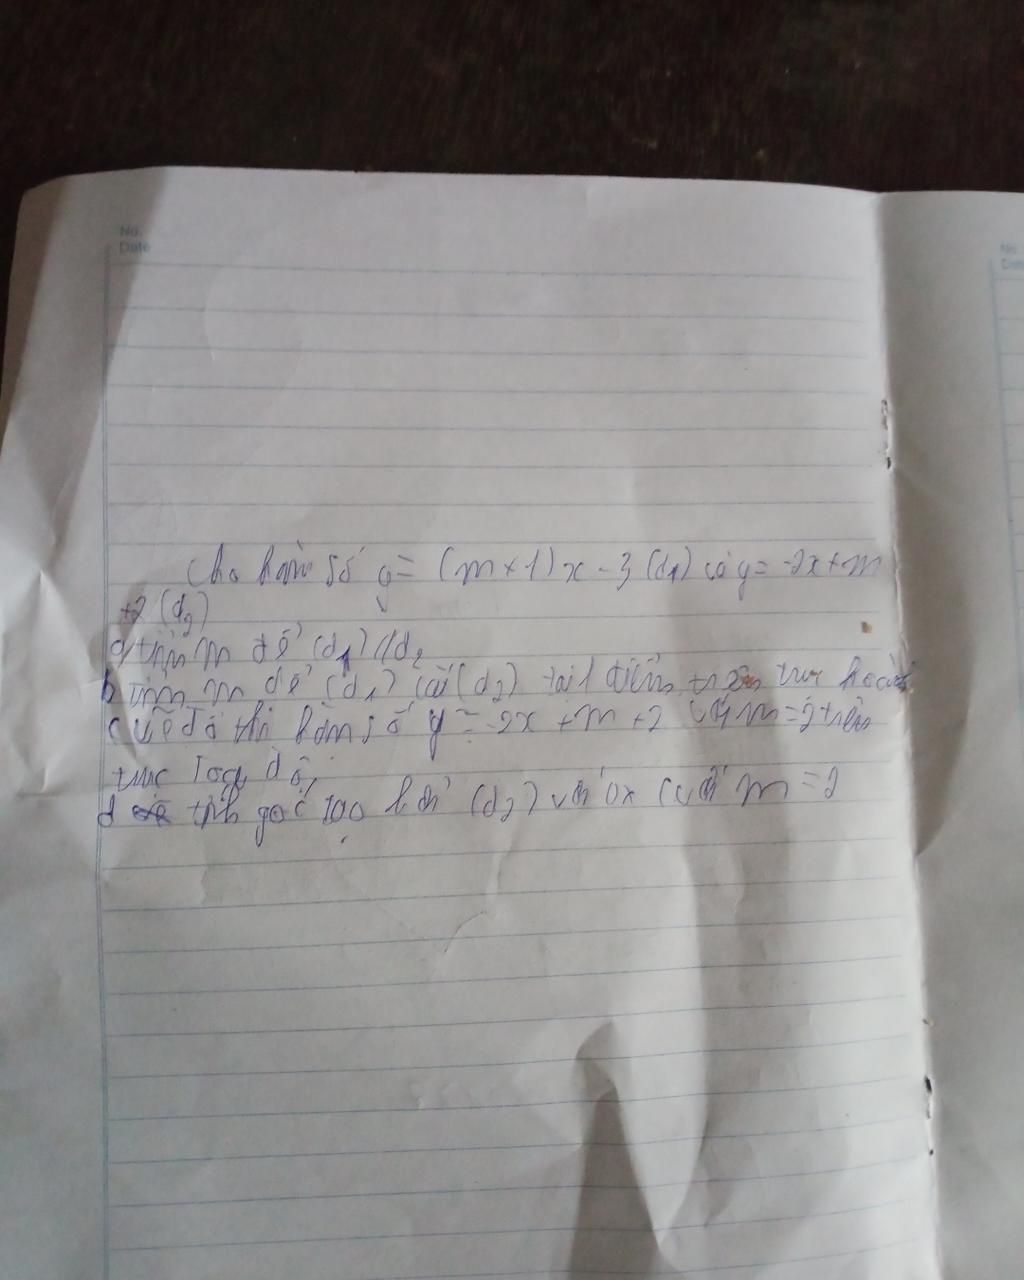 No.
Date
No
Date
Cho hàm số y = (m+1)x - 3 (d1) và y = -2x + m
+2 (d2)
a tìm m để (d1) // d2
b tìm m để (d1) cắt (d2) tại 1 điểm trên trục hoành
c vẽ đồ thị hàm số y = -2x + m + 2 với m = 2 trên
trục Toạ độ
d tính góc tạo bởi (d2) với ox (với m = 2